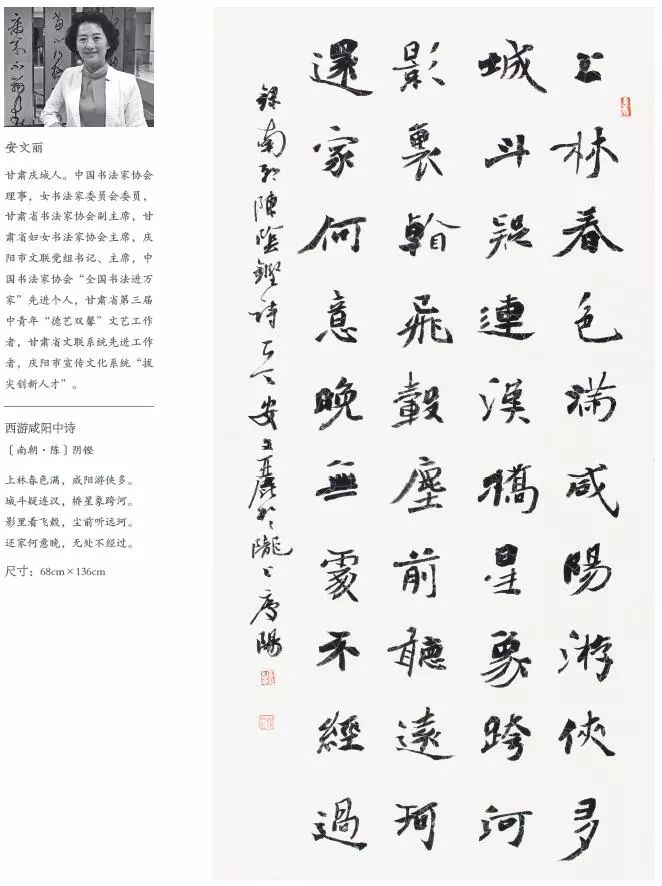 安文丽
甘肃庆城人。中国书法家协会
理事，女书法家委员会委员，
甘肃省书法家协会副主席，甘
肃省妇女书法家协会主席，庆
阳市文联党组书记、主席，中
国书法家协会“全国书法进万
家”先进个人，甘肃省第三届
中青年“德艺双馨”文艺工作
者，甘肃省文联系统先进工作
者，庆阳市宣传文化系统“拔
尖创新人才”。
西游咸阳中诗
〔南朝·陈〕阴铿
上林春色满，咸阳游侠多。
城斗疑连汉，桥星象跨河。
影里看飞毂，尘前听远珂。
还家何意晚，无处不经过。
尺寸：68cm×136cm
上林春色滿咸陽游俠多
城斗疑連漢橋星象跨河
影裏看飛轂塵前聽遠珂
還家何意晚無處不經過
錄南朝陳陰鏗詩安文麗於隴上慶陽